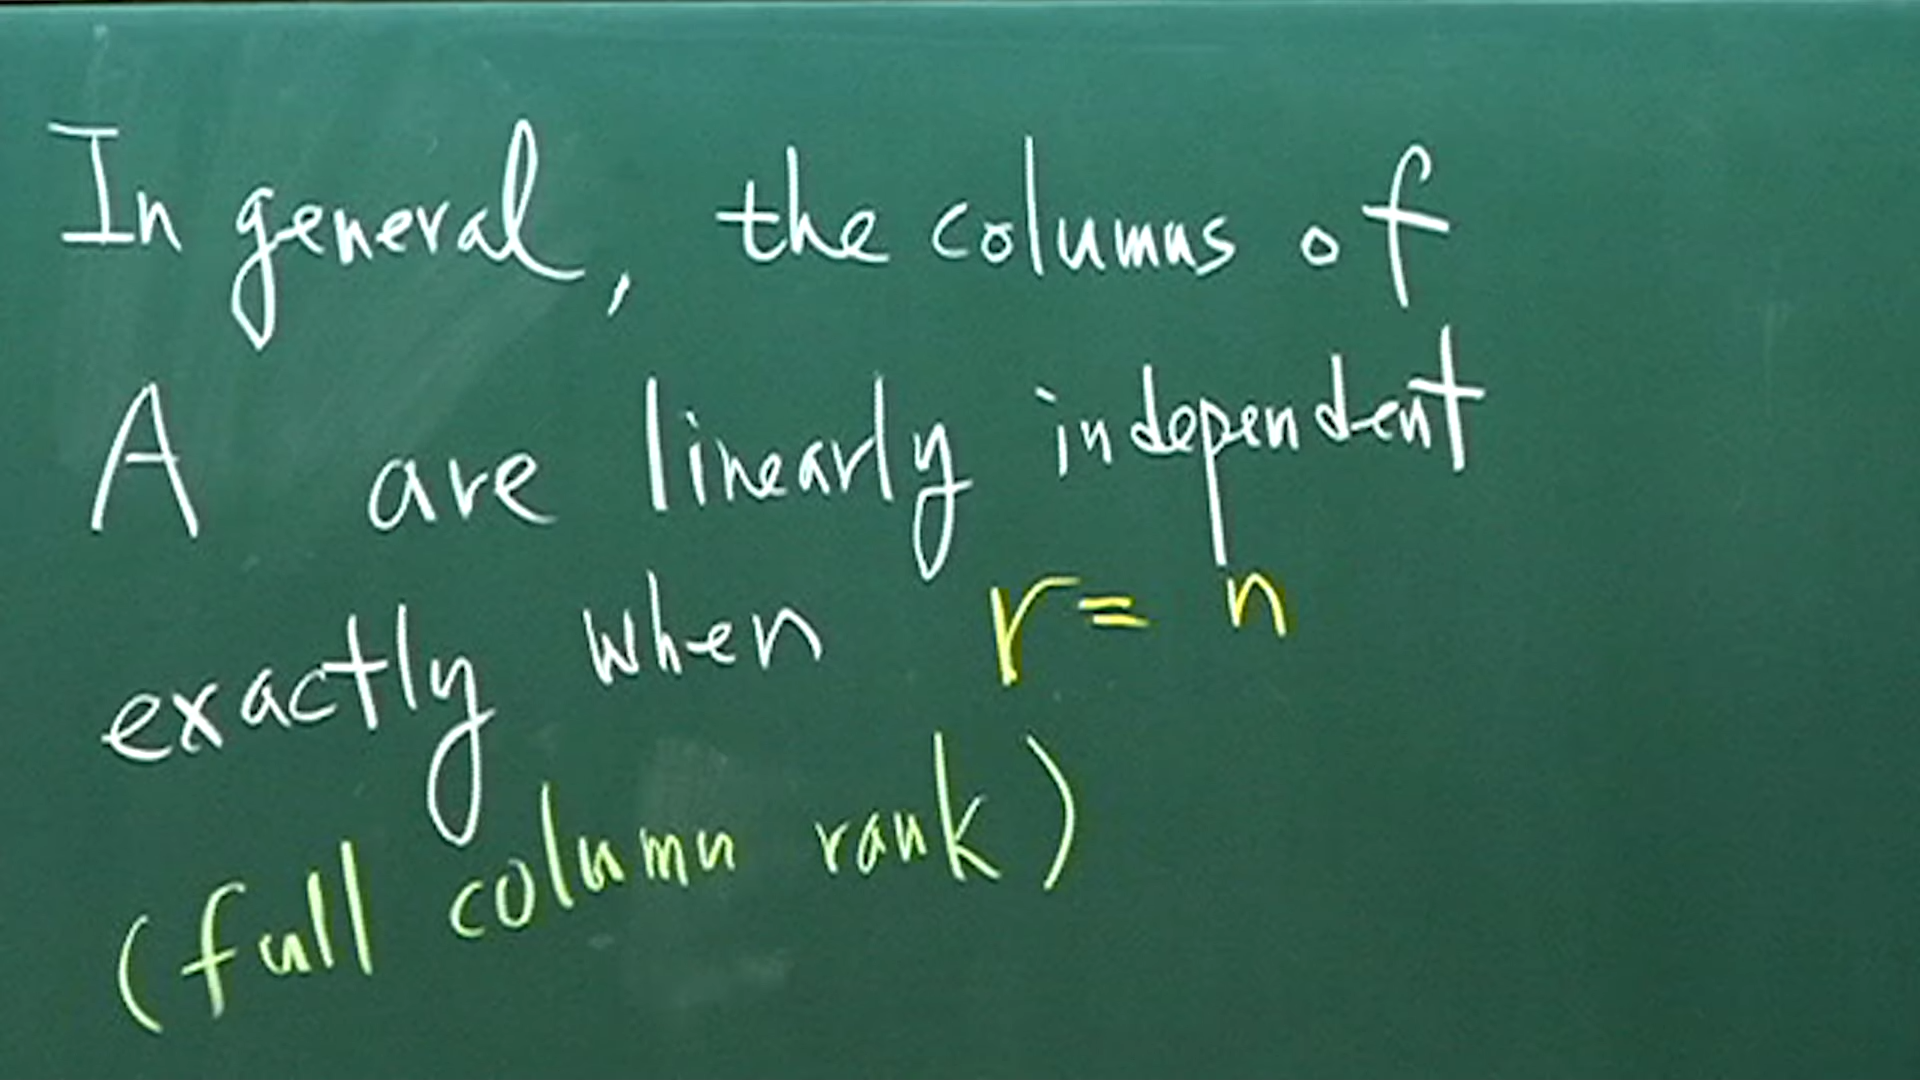 In general, the columns of
A are linearly independent
exactly when r = n
(full column rank)